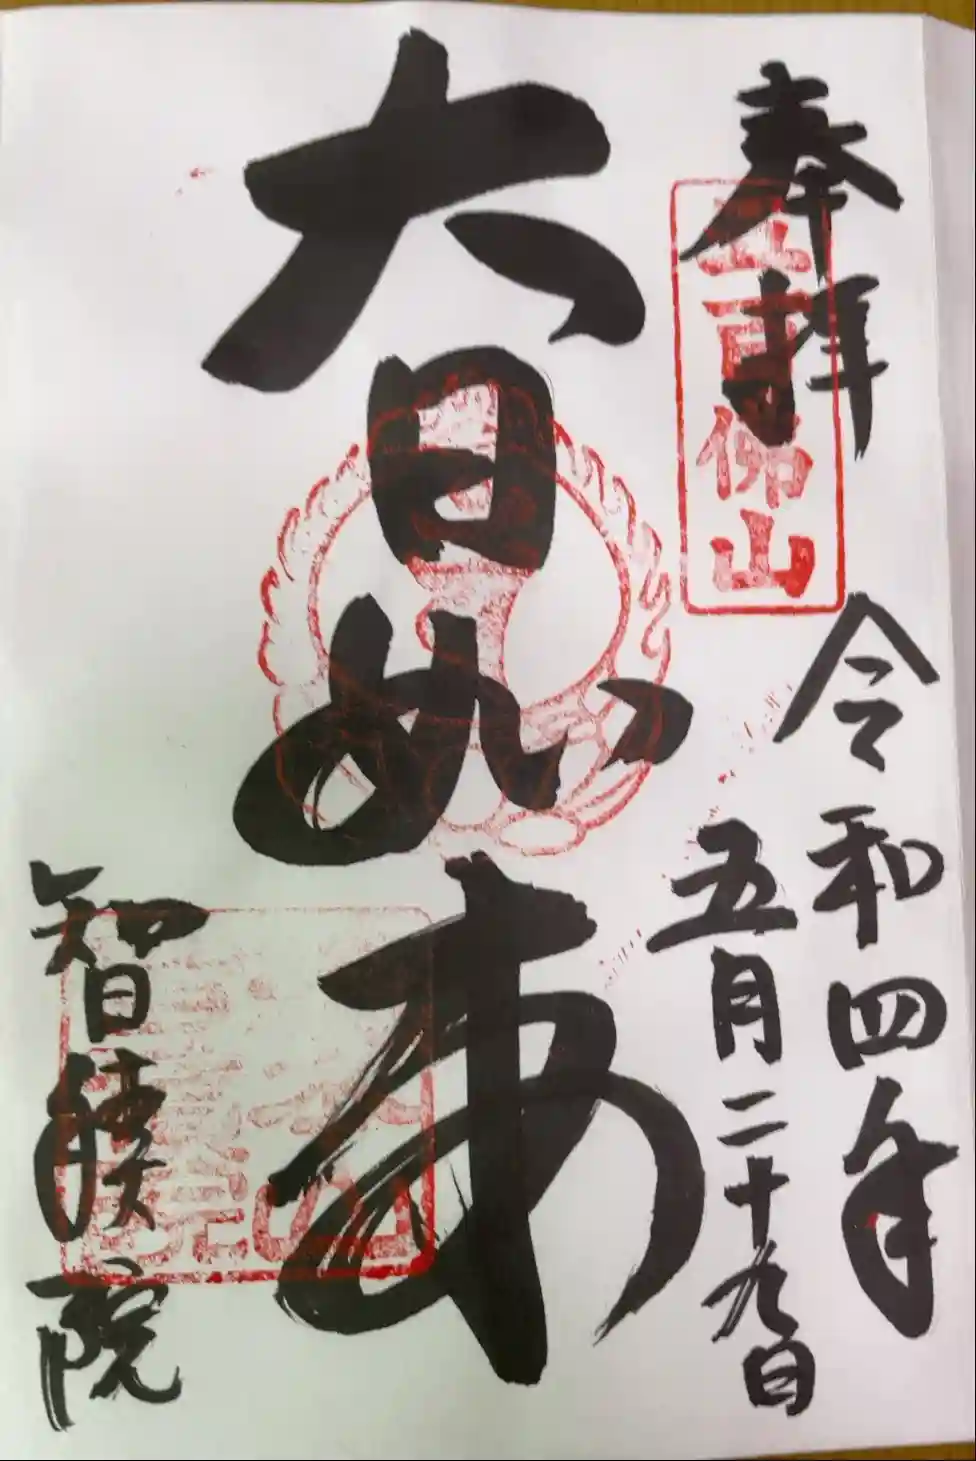 奉拝
五百佛山
令和四年
五月二十九日
大日如来
智積院